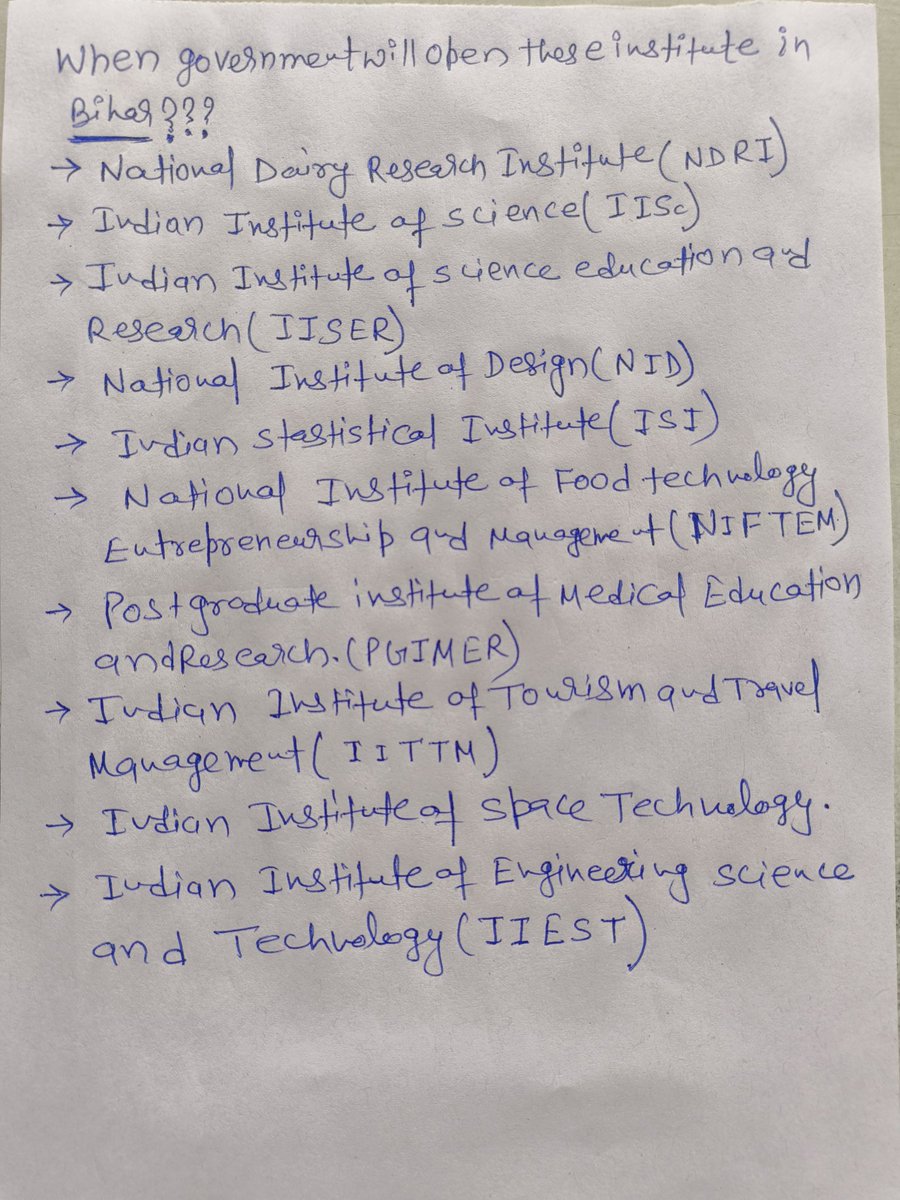 When government will open these institute in
Bihar???
→ National Dairy Research Institute (NDRI)
→ Indian Institute of science (IISc)
→ Indian Institute of science education and
Research (IISER)
→ National Institute of Design (NID)
→ Indian Stastistical Institute (ISI)
→ National Institute of Food technology
Entrepreneurship and Management (NIFTEM)
→ Postgraduate institute of Medical Education
and Research. (PGIMER)
→ Indian Institute of Tourism and Travel
Management (IITTM)
→ Indian Institute of Space Technology.
→ Indian Institute of Engineering science
and Technology (IIEST)